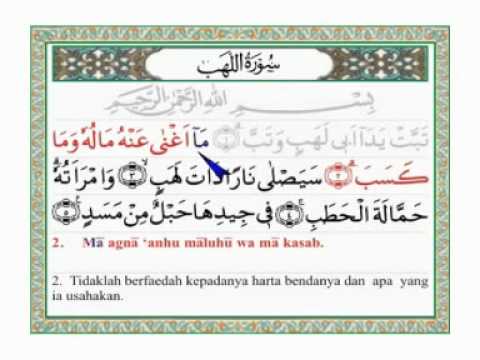 سُوْرَةُ اللَّهَبِ
بِسْمِ اللّٰهِ الرَّحْمٰنِ الرَّحِيْمِ
تَبَّتْ يَدَآ اَبِيْ لَهَبٍ وَّتَبَّۗ ﴿١﴾ مَآ اَغْنٰى عَنْهُ مَالُهٗ وَمَا
كَسَبَۗ ﴿٢﴾ سَيَصْلٰى نَارًا ذَاتَ لَهَبٍۙ ﴿٣﴾ وَّامْرَاَتُهٗۗ
حَمَّالَةَ الْحَطَبِۚ ﴿٤﴾ فِيْ جِيْدِهَا حَبْلٌ مِّنْ مَّسَدٍ ﴿٥﴾
2. Mā agnā ‘anhu māluhū wa mā kasab.
2. Tidaklah berfaedah kepadanya harta bendanya dan apa yang
ia usahakan.